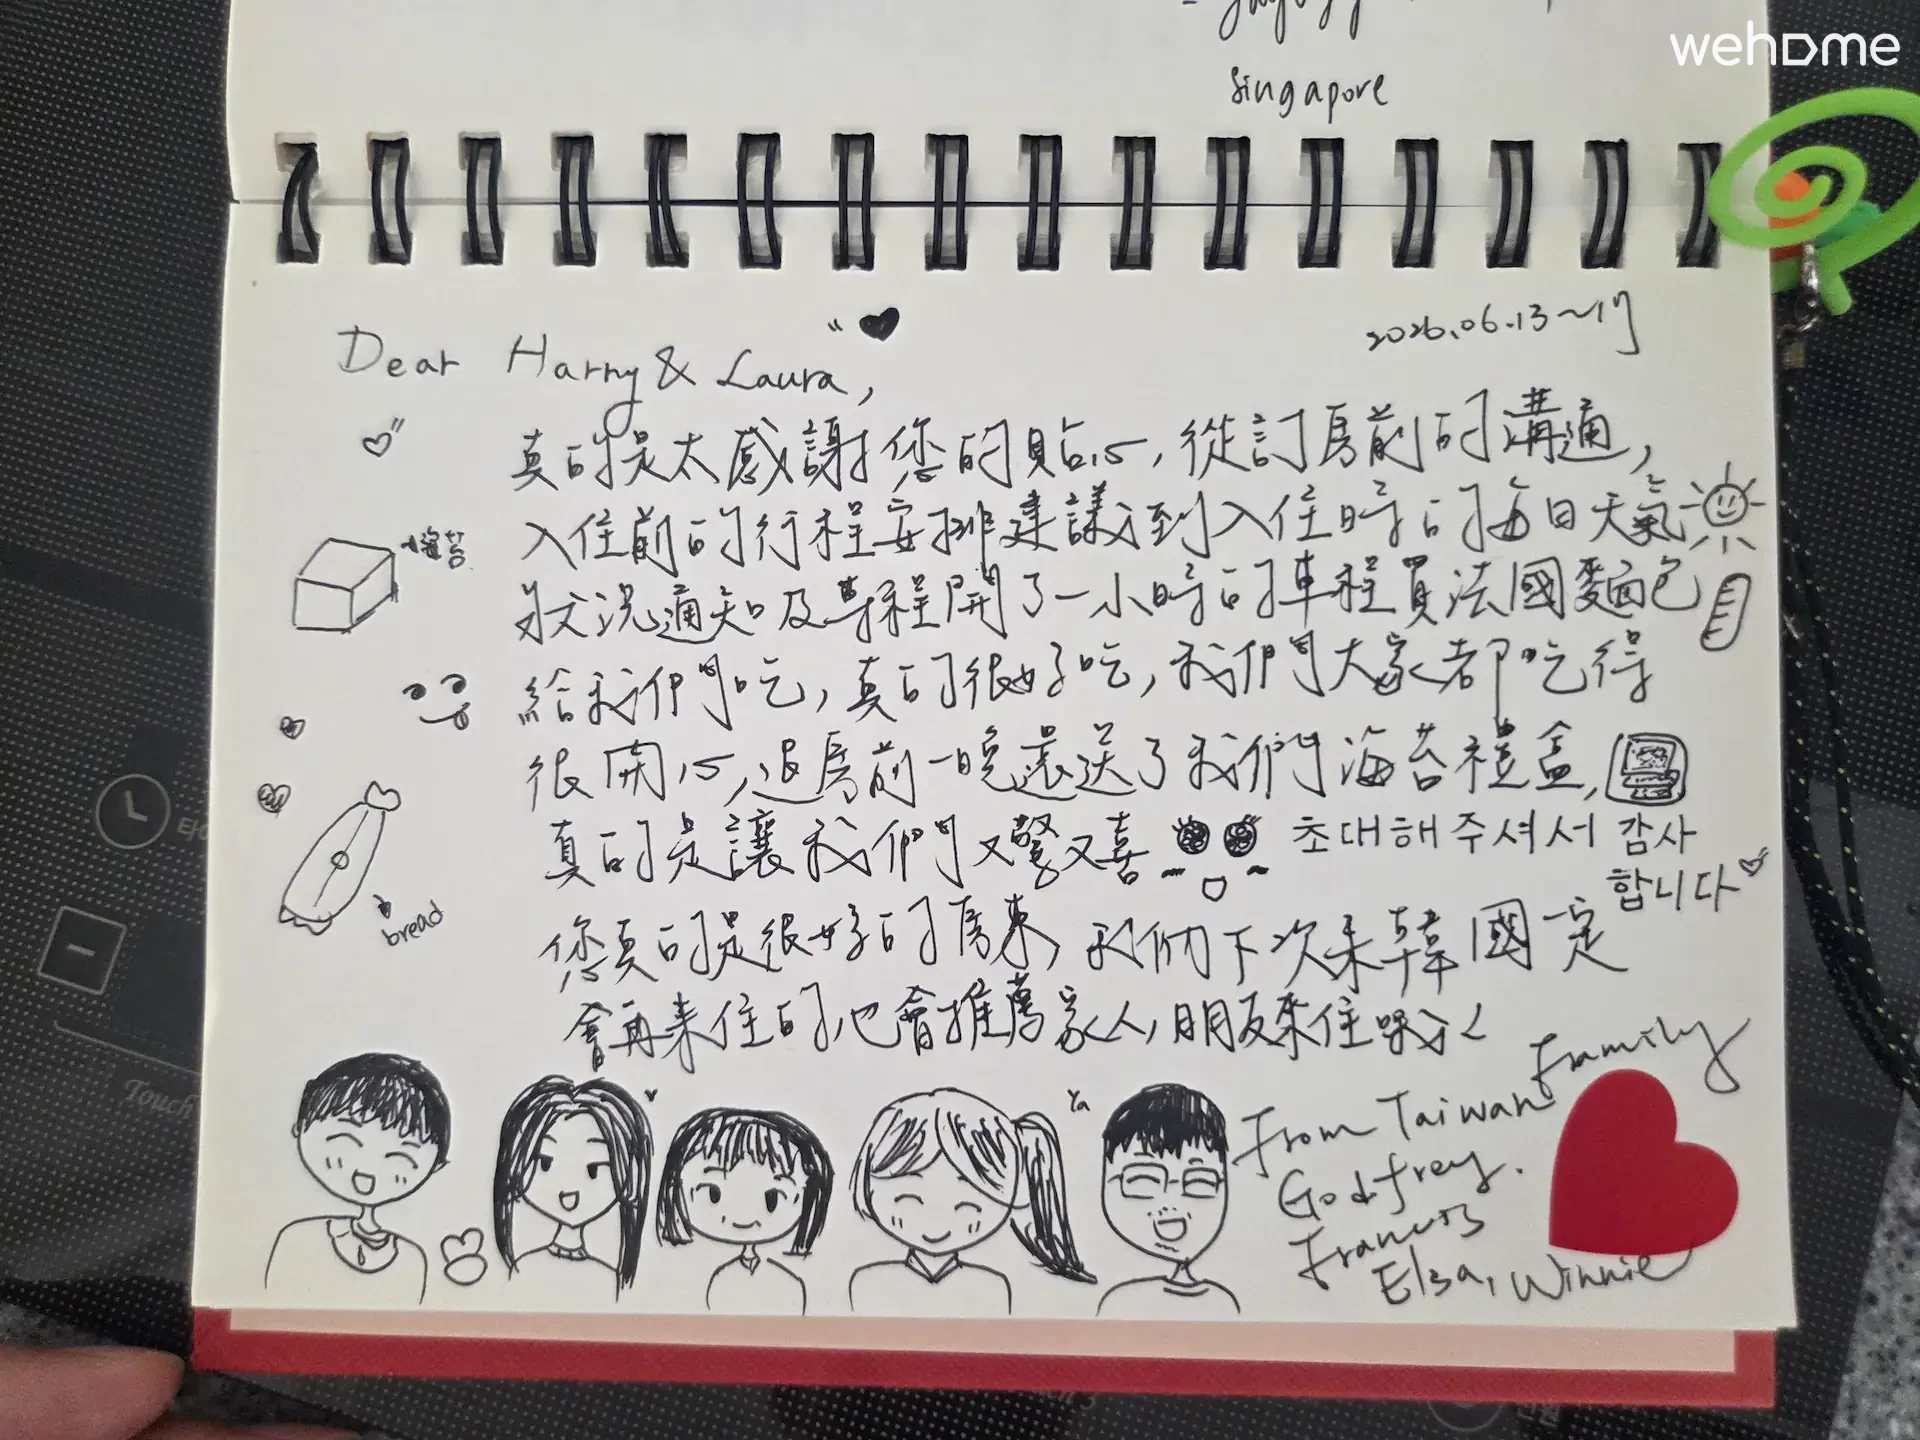 wehome
Singapore
2026.06.13~17
Dear Harry & Laura,
真的是太感謝您的貼心,從訂房前的溝通,
入住前的行程安排建議到入住時的每日天氣
狀況通知及專程開了一小時的車程買法國麵包
給我們吃,真的很好吃,我們大家都吃得
很開心,退房前一晚還送了我們海苔禮盒,
真的是讓我們又驚又喜
초대해주셔서 감사
합니다
您真的是很好的房東,我們下次來韓國一定
會再來住的,也會推薦家人,朋友來住
海苔
bread
Ya
From Taiwan Family
Godfrey.
Francis
Elsa, Winnie
Touch